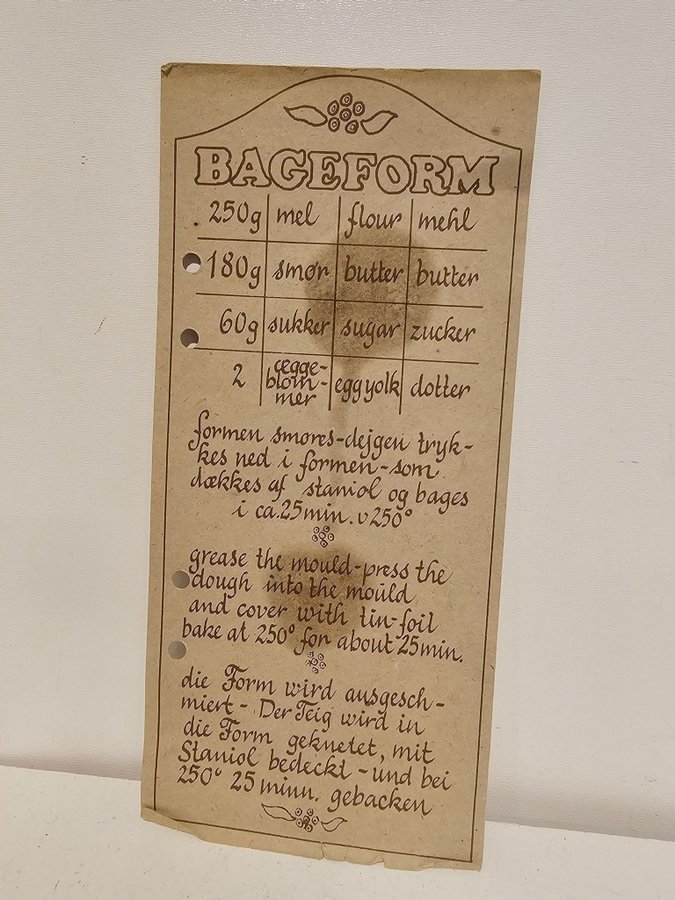 BAGEFORM
250g mel flour mehl
180g smør butter butter
60g sukker sugar zucker
2 ægge-blom-mer eggyolk dotter
formen smøres-dejgen tryk-
kes ned i formen-som
dækkes af staniol og bages
i ca.25min.v250°
grease the mould-press the
dough into the mould
and cover with tin-foil
bake at 250° for about 25min.
die Form wird ausgesch-
miert - Der Teig wird in
die Form geknetet, mit
Staniol bedeckt - und bei
250° 25 minn. gebacken